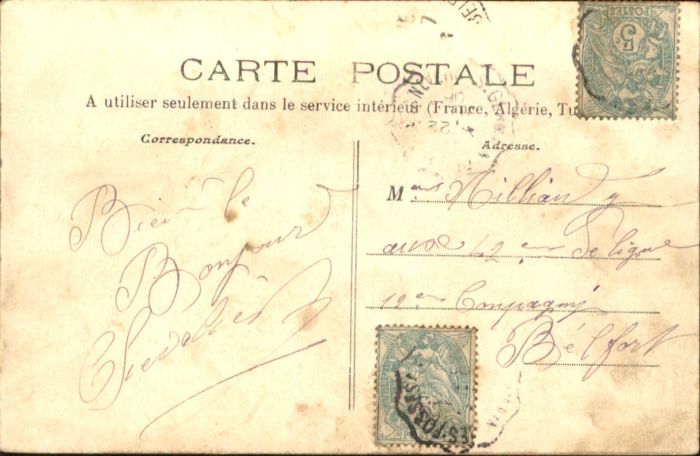 CARTE POSTALE
A utiliser seulement dans le service intérieur (France, Algérie, Tu
Correspondance.
Adresse.
Bien le
Bonjour
M
au 42 em de ligne
12 em Compagnie
Bélfort
POSTES
5c